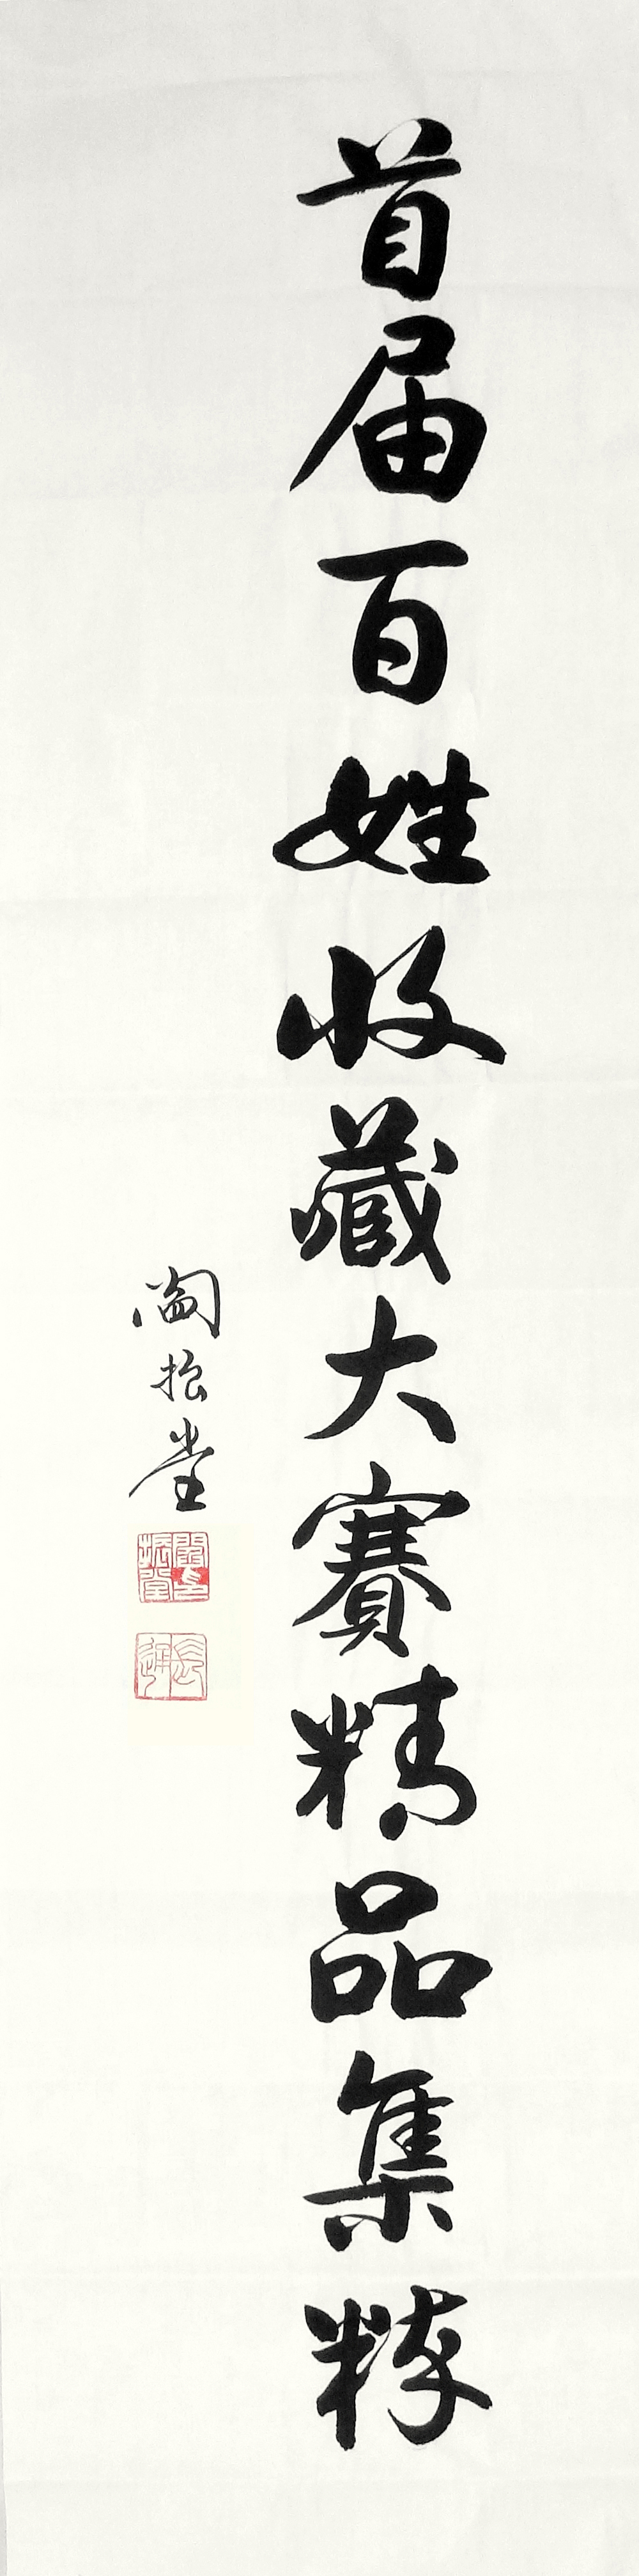 首届百姓收藏大賽精品集粹
阚振堂